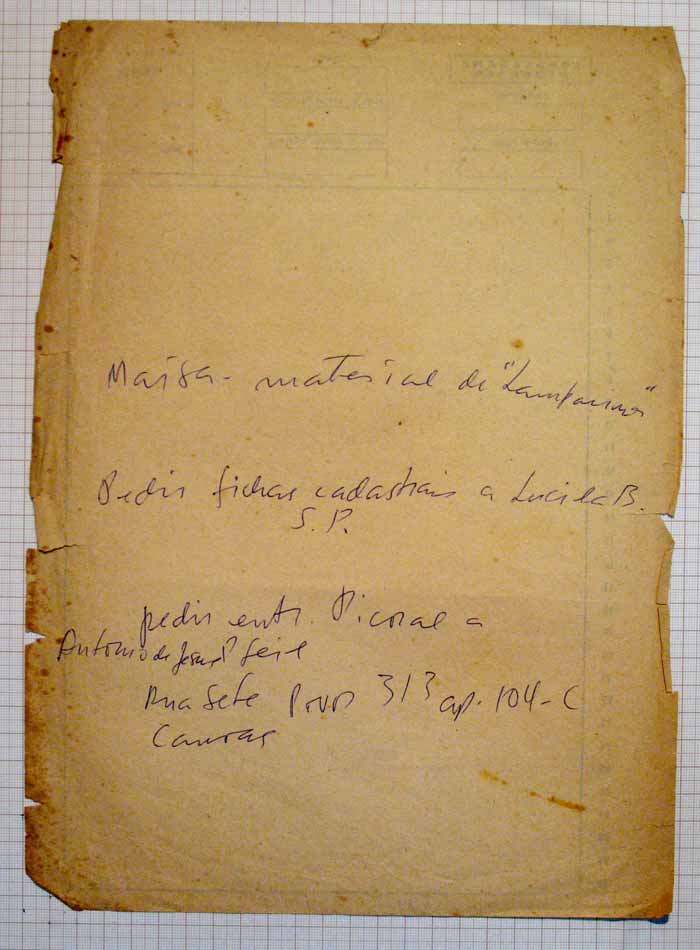 Maisa - material de "Lamparina"
Pedir fichas cadastrais a Lucila B.
S.P.
pedir entr. Picoral a
Antonio de Jesus Pfeil
Rua Sete Povos 313 ap. 104-C
Canoas